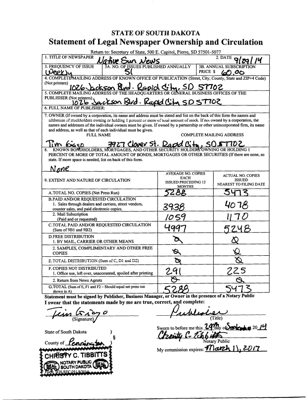 STATE OF SOUTH DAKOTA
Statement of Legal Newspaper Ownership and Circulation
Return to: Secretary of State, 500 E. Capitol, Pierre, SD 57501-5077
1. TITLE OF NEWSPAPER Native Sun News 2. DATE 9/29/14
3. FREQUENCY OF ISSUE Weekly 3A. NO. OF ISSUES PUBLISHED ANNUALLY 51 3B. ANNUAL SUBSCRIPTION PRICE $ 60.00
4. COMPLETE MAILING ADDRESS OF KNOWN OFFICE OF PUBLICATION (Street, City, County, State and ZIP+4 Code) (Not printers)
1026 Jackson Blvd. Rapid City, SD 57702
5. COMPLETE MAILING ADDRESS OF THE HEADQUARTERS OR GENERAL BUSINESS OFFICES OF THE PUBLISHER (Not printers)
1026 Jackson Blvd Rapid City SD 57702
6. FULL NAME OF PUBLISHER:
7. OWNER (If owned by a corporation, its name and address must be stated and list on the back of this form the names and
addresses of stockholders owning or holding 1 percent or more of total amount of stock. If not owned by a corporation, the
names and addresses of the individual owners must be given. If owned by a partnership or other unincorporated firm, its name
and address, as well as that of each individual must be given.
FULL NAME COMPLETE MAILING ADDRESS
Tim 3927 Clover St. Rapid City, SD 57702
8. KNOWN BONDHOLDERS, MORTGAGES, AND OTHER SECURITY HOLDERS OWNING OR HOLDING 1
PERCENT OR MORE OF TOTAL AMOUNT OF BONDS, MORTGAGES OR OTHER SECURITIES (If there are none, so
state. If more space is needed, list on back of this form.
None
9. EXTENT AND NATURE OF CIRCULATION
AVERAGE NO. COPIES EACH ISSUED PRECEDING 12 MONTHS
ACTUAL NO. COPIES ISSUED NEAREST TO FILING DATE
A. TOTAL NO. COPIES (Net Press Run) 5288 5473
B. PAID AND/OR REQUESTED CIRCULATION
1. Sales through dealers and carriers, street vendors, counter sales, and paid electronic copies. 3938 4078
2. Mail Subscription (Paid and or requested) 1059 1170
C. TOTAL PAID AND/OR REQUESTED CIRCULATION (Sum of 9B1 and 9B2) 4997 5248
D. FREE DISTRIBUTION
1. BY MAIL, CARRIER OR OTHER MEANS 0 0
2. SAMPLES, COMPLIMENTARY AND OTHER FREE COPIES 0 0
E. TOTAL DISTRIBUTION (Sum of C, D1 and D2) 0 0
F. COPIES NOT DISTRIBUTED
1. Office use, left over, unaccounted, spoiled after printing 291 225
2. Return from News Agents 0 0
G. TOTAL (Sum of E, F1 and F2 - Should equal net press run shown in A) 5288 5473
Statement must be signed by Publisher, Business Manager, or Owner in the presence of a Notary Public
I swear that the statements made by me are true, correct, and complete:
Publisher
(Signature) (Title)
State of South Dakota )
County of Pennington
Sworn to before me this 29th day 14
Christy C. Tibbitts
Notary Public
My commission expires: March 11, 2017
CHRISTY C. TIBBITTS
NOTARY PUBLIC
SOUTH DAKOTA